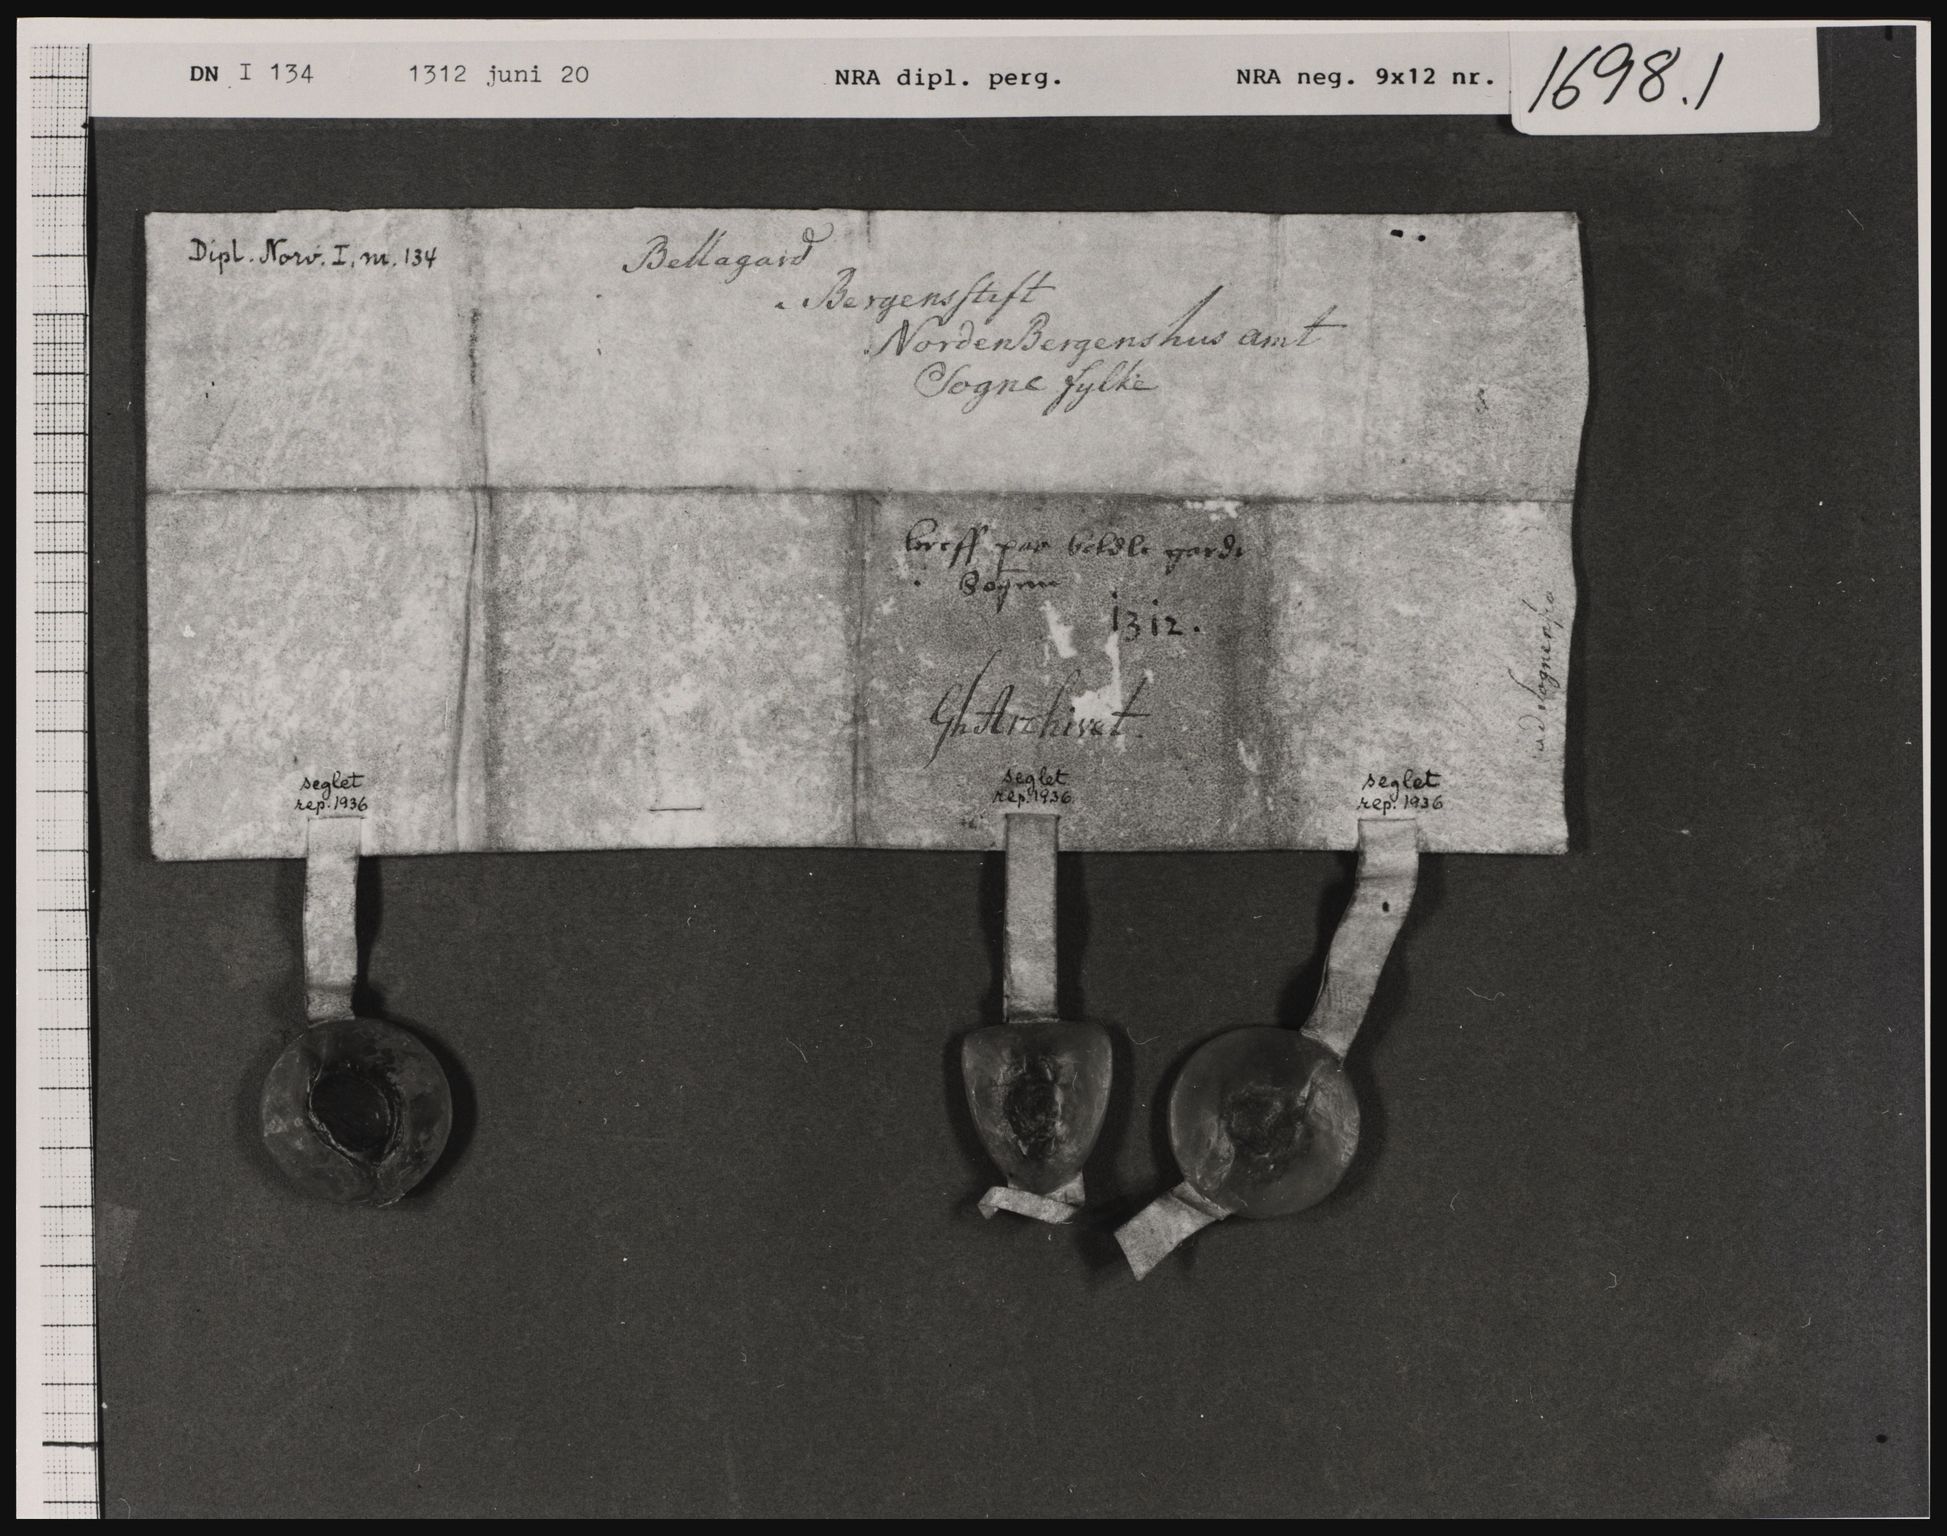 DN I 134 1312 juni 20 NRA dipl. perg. NRA neg. 9x12 nr. 1698.1
Dipl. Norv. I, nr. 134
Bellagard
Bergensstift
Norden Bergenshus amt
Sogne fylke
breff paa
1312.
Gh Archivet.
seglet
rep. 1936
seglet
rep. 1936
seglet
rep. 1936